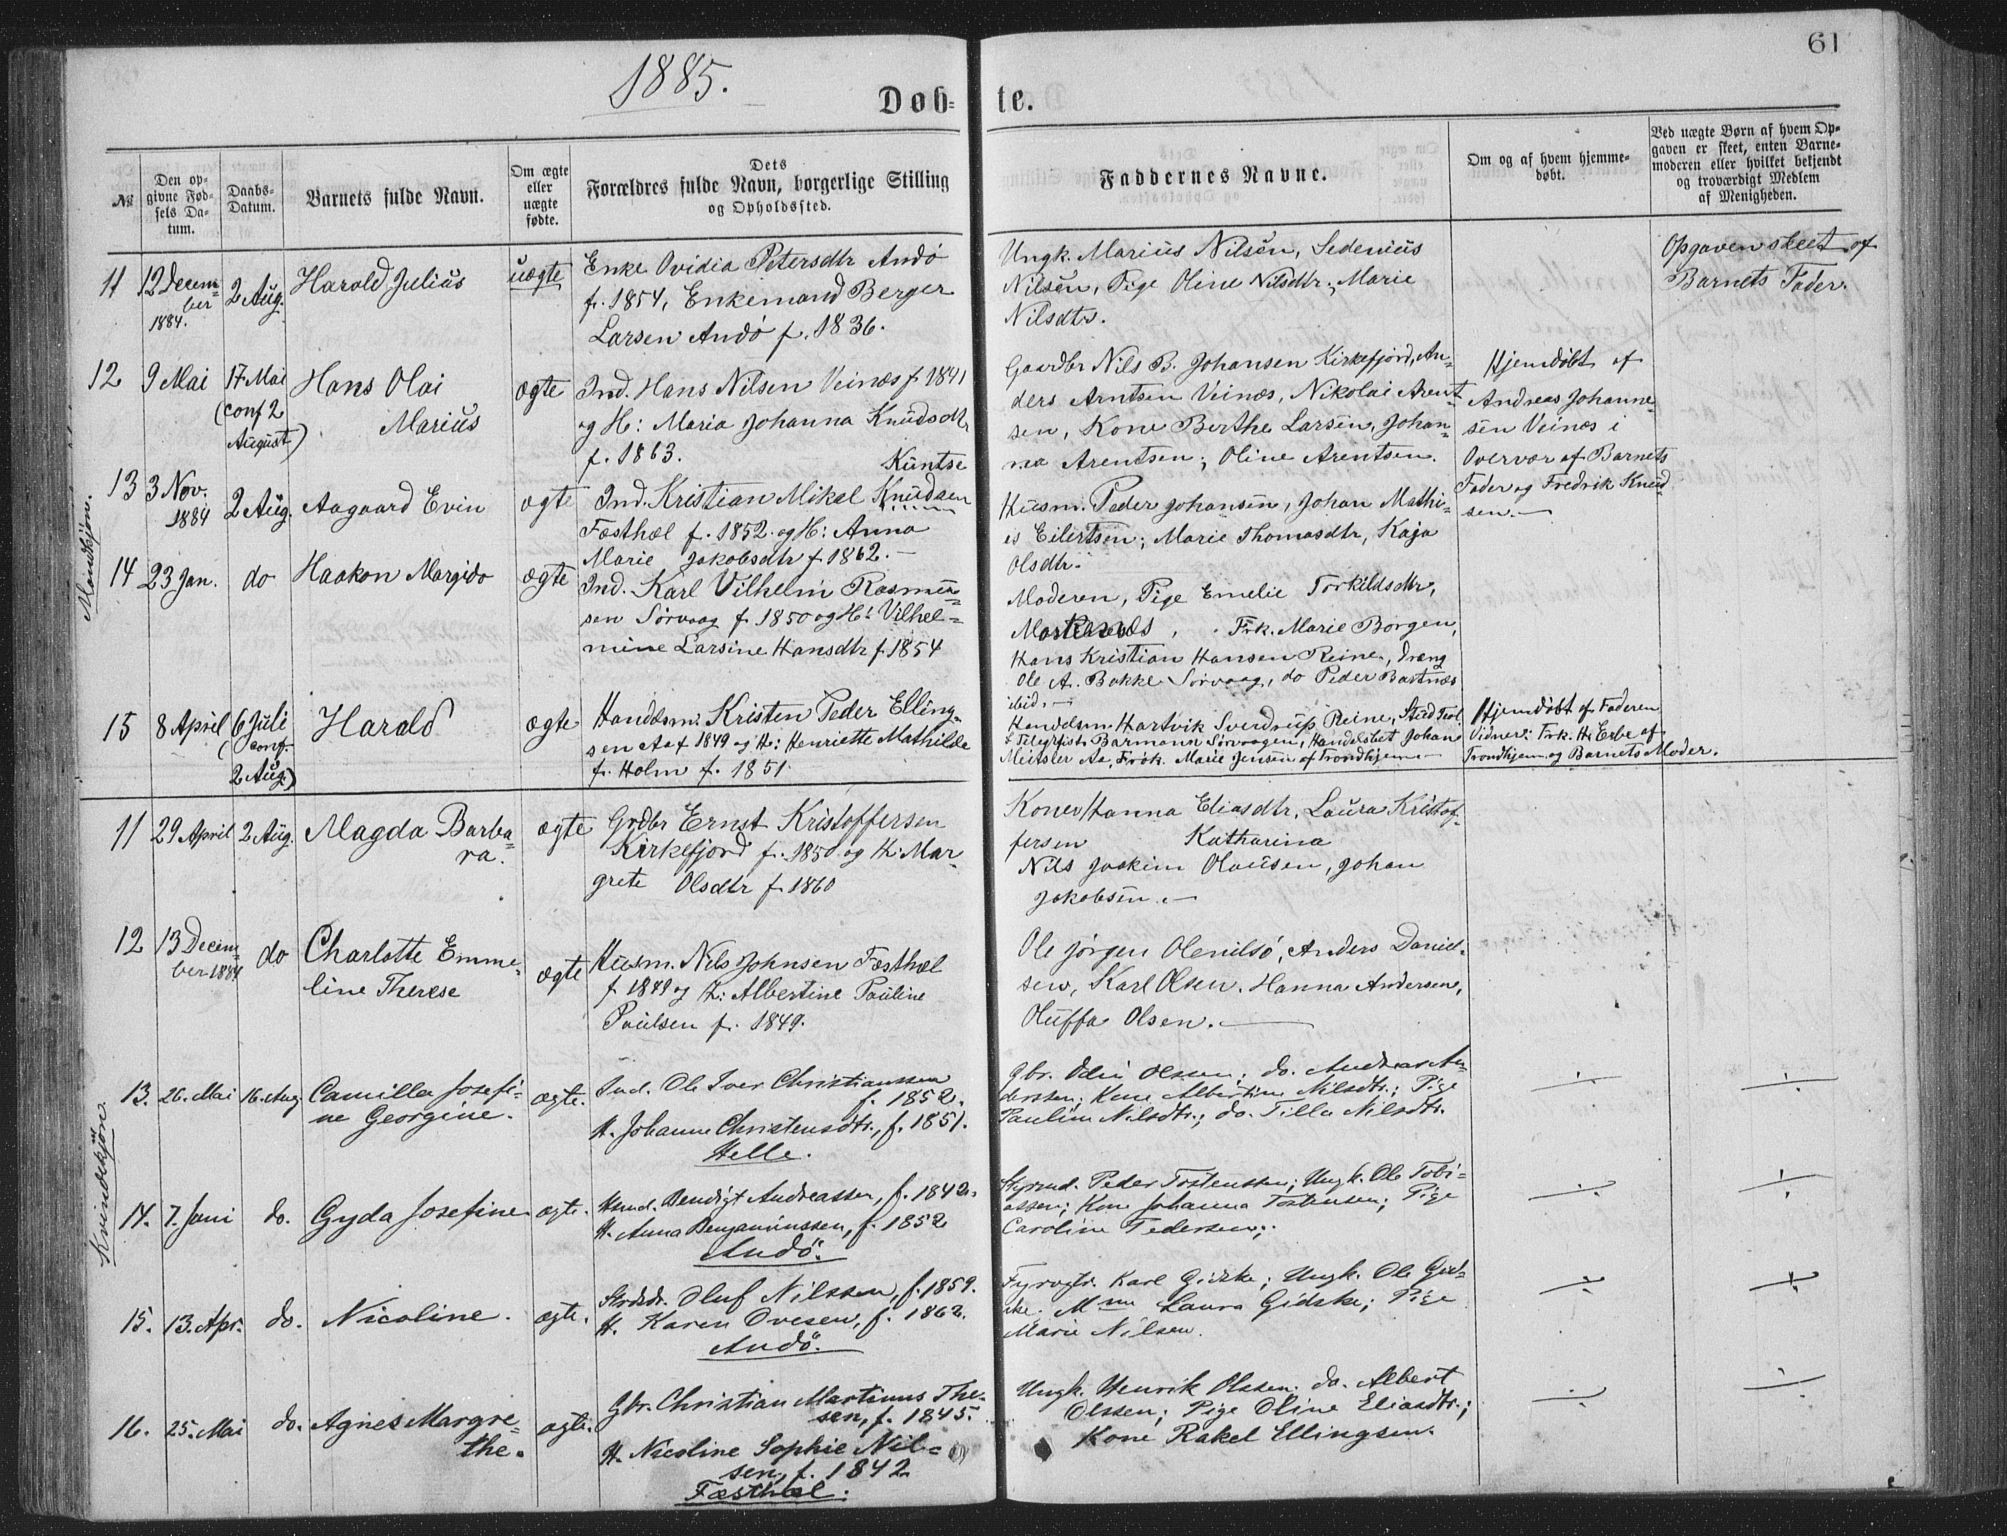 61
1885.
Døb- te.
№
Den op-
givne Fød-
sels Da-
tum.
Daabs-
Datum.
Barnets fulde Navn.
Om ægte
eller
uægte
fødte.
Dets
Forældres fulde Navn, borgerlige Stilling
og Opholdssted.
Faddernes Navne.
Om og af hvem hjemme-
døbt.
Ved uægte Børn af hvem Op-
gaven er skeet, enten Barne-
moderen eller hvilket bekjendt
og troværdigt Medlem
af Menigheden.
Mandkjön.
11
12 Decem-
ber
1884.
2 Aug.
Harald Julius
uægte
Enke Ovidia Petersdtr Andø
f. 1854, Enkemand Berger
Larsen Andø f. 1836.
Ungk. Marius Nilsen, Sedenius
Nilsen, Pige Oline Nilsdtr., Marie
Nilsdtr.
Opgaven skeet af
Barnets Fader.
12
9 Mai
17 Mai
(conf 2
August)
Hans Olai
Marius
ægte
Ind. Hans Nilsen Veinæs f 1841
og H: Maria Johanna Knudsdtr
f. 1863.
Gaardbr Nils B. Johansen Kirkefjord, An-
ders Arntsen Veinæs, Nikolai Arent-
sen, Kone Berthe Larsen, Johan-
na Arentsen; Oline Arentsen.
Hjemdøbt af
Andreas Johanne-
sen Veinæs i
Overvær af Barnets
Fader og Fredrik Knud-
sen.
13
3 Nov.
1884
2 Aug.
Aagaard Evin
ægte
Kuntse
Ind. Kristian Mikal Knudsen
Fæsthæl f. 1852. og H: Anna
Marie Jakobsdtr f 1862.
Husm. Peder Johansen, Johan Mathi-
es Eilertsen; Marie Thomasdtr, Kaja
Olsdtr.
14
23 Jan.
do
Haakon Margido
ægte
Ind. Karl Vilhelm Rasmus-
sen Sørvaag f. 1850 og H: Vilhel-
mine Larsine Hansdtr f 1854
Moderen, Pige Emelie Torkildsdtr,
Frk. Marie Borgen,
Hans Kristian Hansen Reine, Dreng
Ole A. Bakke Sørvaag, do Peder Bastnæs
ibid.
15
8 April
6 Juli
(conf.
2 Aug.)
Harald
ægte
Handelsm. Kristen Peder Elling-
sen Aa f 1849 og H: Henriette Mathilde
f. Holm f. 1851.
Handelsm. Hartvik Sverdrup Reine, Stud Teol.
& Telgrfist Barmann Sørvaagen, Handelsbet Johan
Meitsler Aa, Frøk. Marie Jensen af Trondhjem
Hjemdøbt af Faderen
Vidner: Frk. H. Erbe af
Trondhjem og Barnets Moder.
Kvindekjön.
11
29 April
2 Aug.
Magda Barba-
ra.
ægte
Grdbr Ernst Kristoffersen
Kirkefjord f. 1850. og H: Mar-
grete Olsdtr f 1860
Koner Hanna Eliasdtr, Laura Kristof-
fersen Katharina
Nils Joakim Olausen, Johan
Jakobsen.
12
13 Decem-
ber 1884
do
Charlotte Emme-
line Therese
ægte
Husm. Nils Johnsen Fæsthæl
f 1849 og H: Albertine Pauline
Paulsen f. 1849.
Ole Jørgen Olenilsø, Anders Daniel-
sen, Karl Olsen. Hanna Andersen,
Oluffa Olsen.
13.
26. Mai
16. Aug
Camilla Josefi-
ne Georgine.
ægte.
Ind. Ole Iver Christianssen
f. 1852.
H. Johanne Christensdtr., f. 1851.
Helle.
Gbr. Odin Olssen; do. Andreas An-
derssen; Kone Albertine Nilsdtr.; Pige
Pauline Nilsdtr.; do. Tilla Nilsdtr.
14.
7. Juni
do.
Gyda Josefine
ægte.
Hmd. Bendigt Andreassen, f. 1842.
H. Anna Benjaminssen, f. 1852
Andö.
Styrmd. Peder Tostenssen; Ungk. Ole Tobi-
assen; Kone Johanna Tostensen; Pige
Caroline Pedersen;
15.
13. Apr.
do.
Nicoline.
ægte.
Strdsdr. Oluf Nilssen, f. 1859.
H. Karen Ovesen, f. 1862.
Andö.
Fyrvgtr. Karl Gidske; Ungk. Ole Gid-
ske. Mm Laura Gidske; Pige
Marie Nilsen.
16.
25. Mai
do.
Agnes Margre-
the.
ægte.
Gbr. Christian Martinus The-
sen, f. 1845.
H. Nicoline Sophie Nil-
sen, f. 1842
Fæsthæl.
Ungk. Henrik Olssen. do. Albert
Olssen; Pige Oline Eliasdtr.;
Kone Rakel Ellingsen.